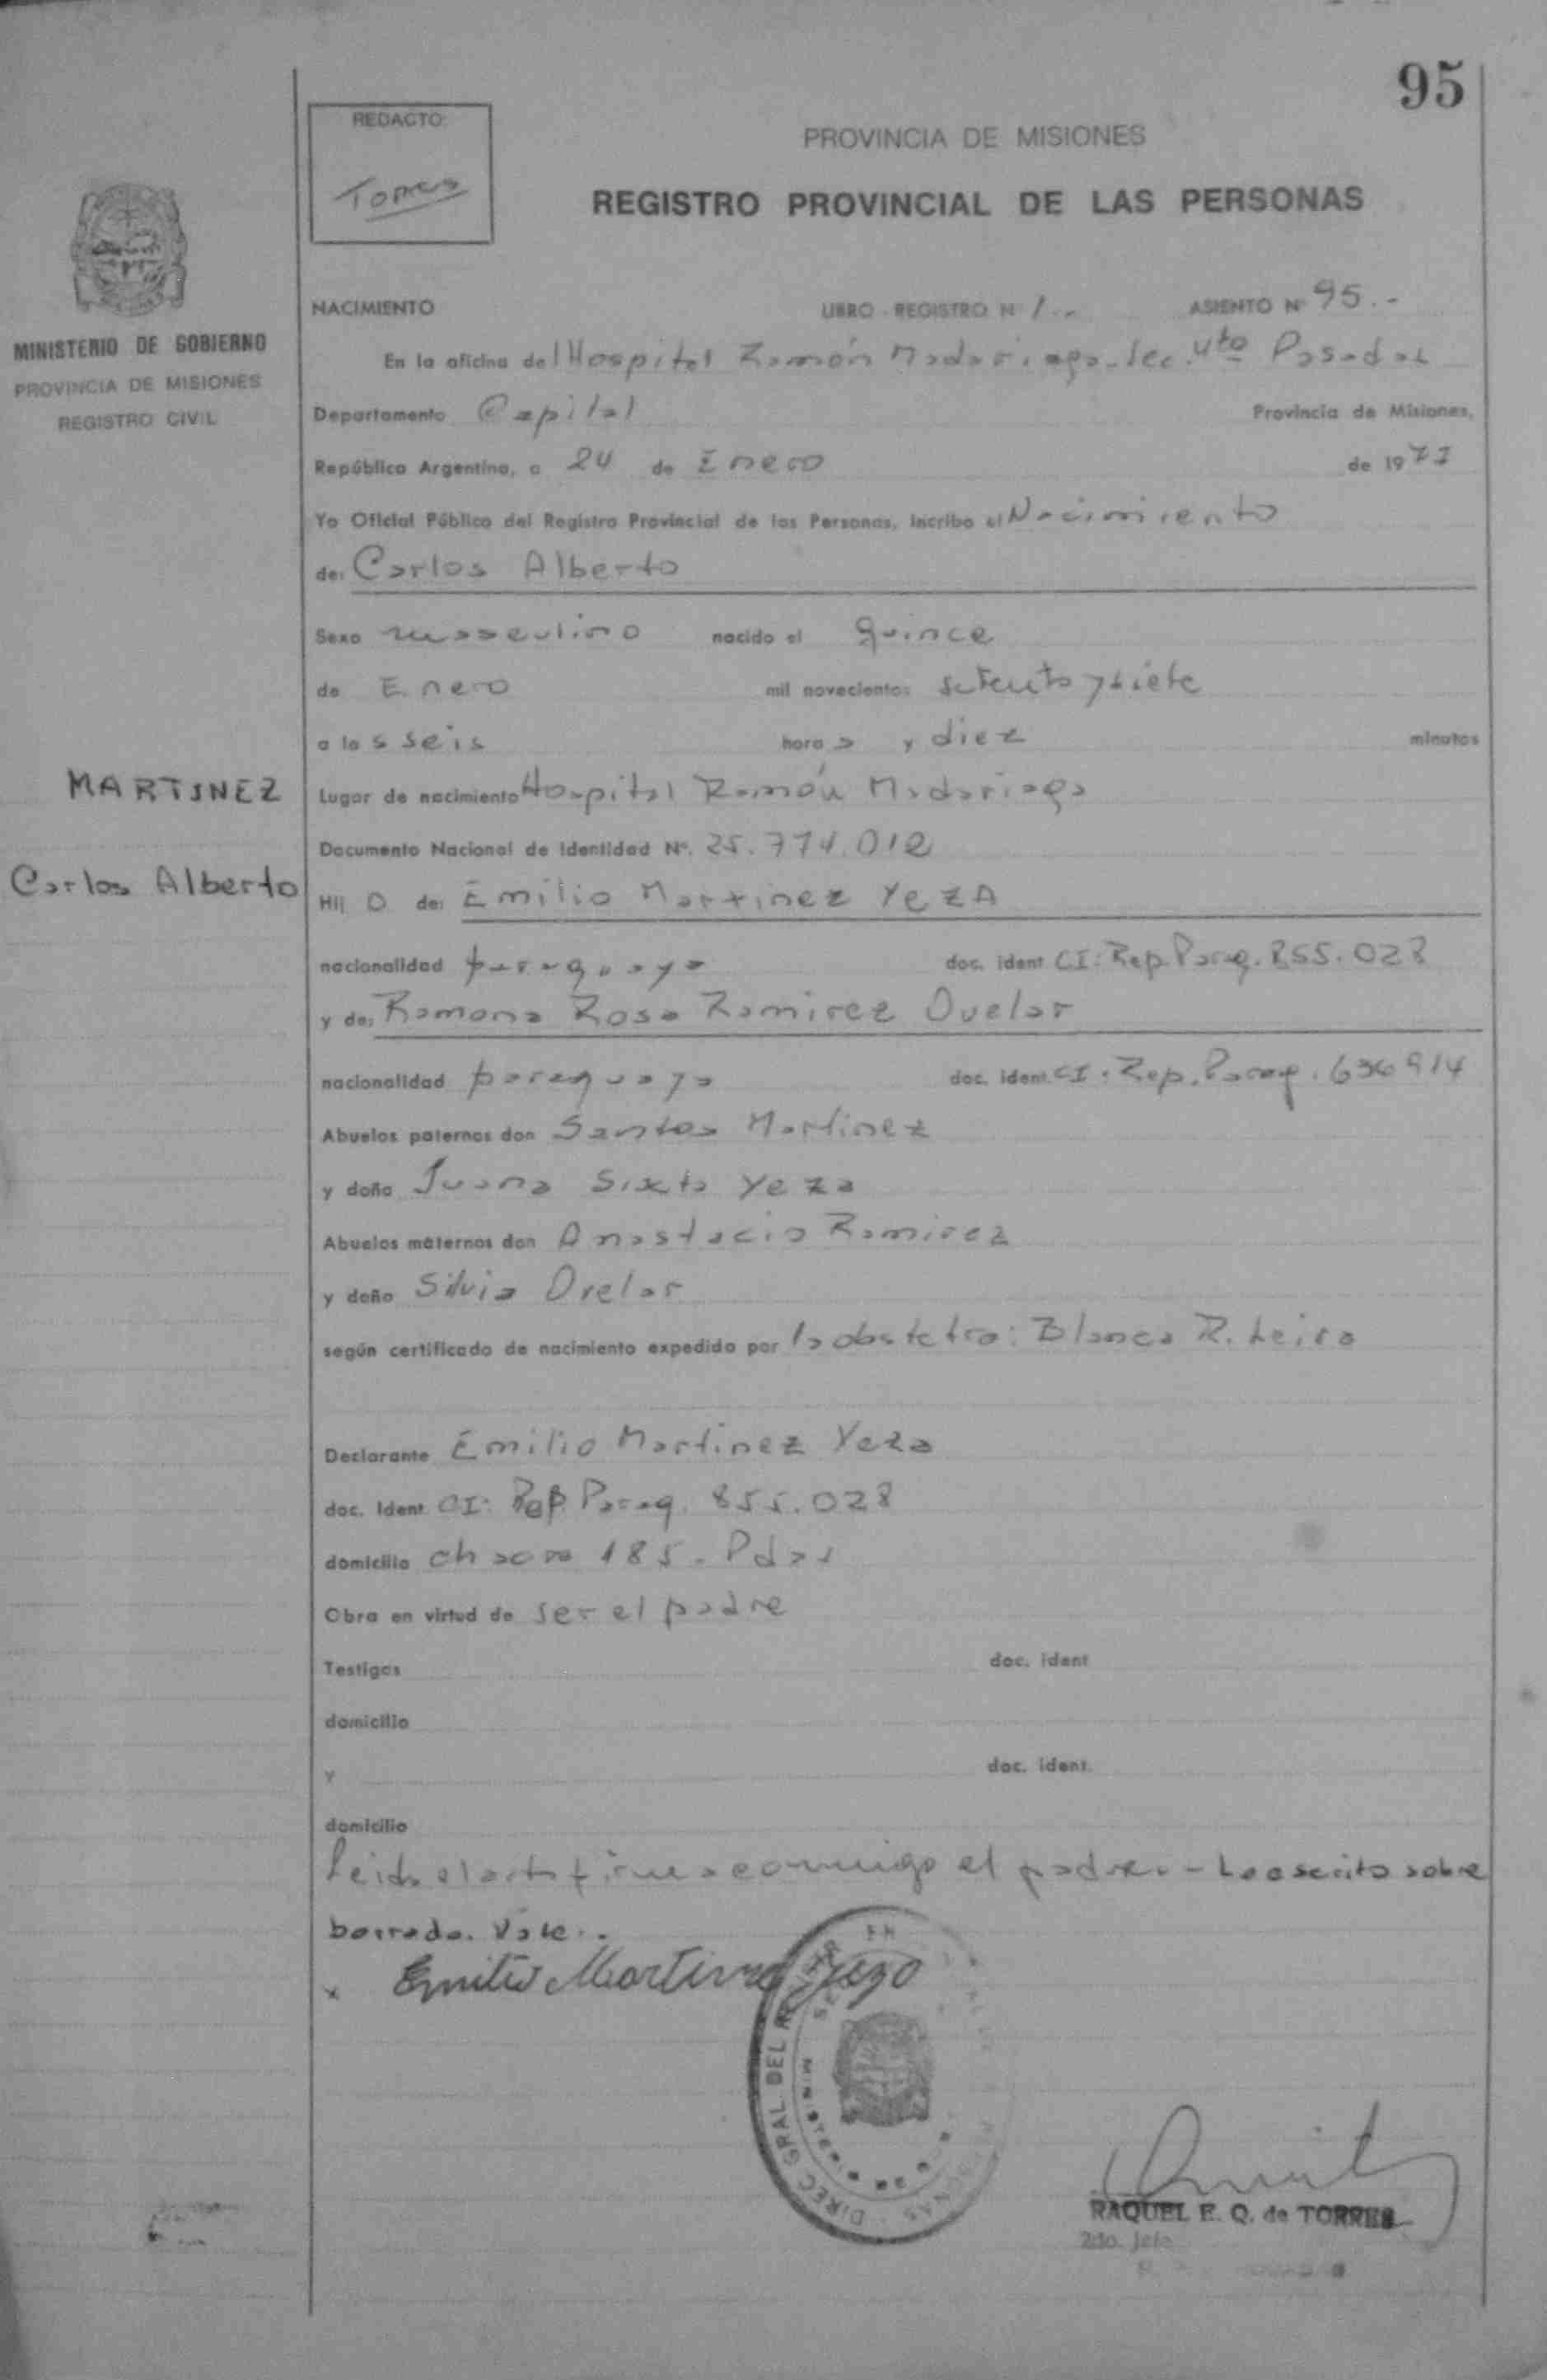 95
REDACTO:
Torres
PROVINCIA DE MISIONES
REGISTRO PROVINCIAL DE LAS PERSONAS
MINISTERIO DE GOBIERNO
PROVINCIA DE MISIONES
REGISTRO CIVIL
NACIMIENTO LIBRO - REGISTRO Nº 1.- ASIENTO Nº 95.-
En la oficina del Hospital Ramón Madariaga - Sec. 4to Posadas
Departamento Capital Provincia de Misiones,
República Argentina, a 24 de Enero de 1977
Yo Oficial Público del Registro Provincial de las Personas, Incribo el Nacimiento
de: Carlos Alberto
Sexo masculino nacido el quince
de Enero mil novecientos setenta y siete
a las seis horas y diez minutos
MARTINEZ
Carlos Alberto
Lugar de nacimiento Hospital Ramón Madariaga
Documento Nacional de Identidad Nº. 25.774.012
Hij o de: Emilio Martinez YezA
nacionalidad paraguaya doc. ident CI: Rep. Parag. 855.028
y de: Ramona Rosa Ramirez Ovelar
nacionalidad paraguaya doc. ident. CI. Rep. Parag. 636914
Abuelos paternos don Santos Martinez
y doña Juana Sixta Yeza
Abuelos maternos don Anastacio Ramirez
y doña Silvia Ovelar
según certificado de nacimiento expedido por la obstetra: Blanca R. Leiva
Declarante Emilio Martinez Yeza
doc. Ident CI: Rep. Parag. 855.028
domicilio chacra 185. Pdas
Obra en virtud de ser el padre
Testigos doc. ident
domicilio
y doc. ident.
domicilio
Leida el acta firma conmigo el padre. - Lo escrito sobre
borrado. Vale.
x Emilio Martinez Yeza
DIREC. GRAL. DEL
MINISTERIO DE
RAQUEL E. Q. de TORRES
2do. Jefe